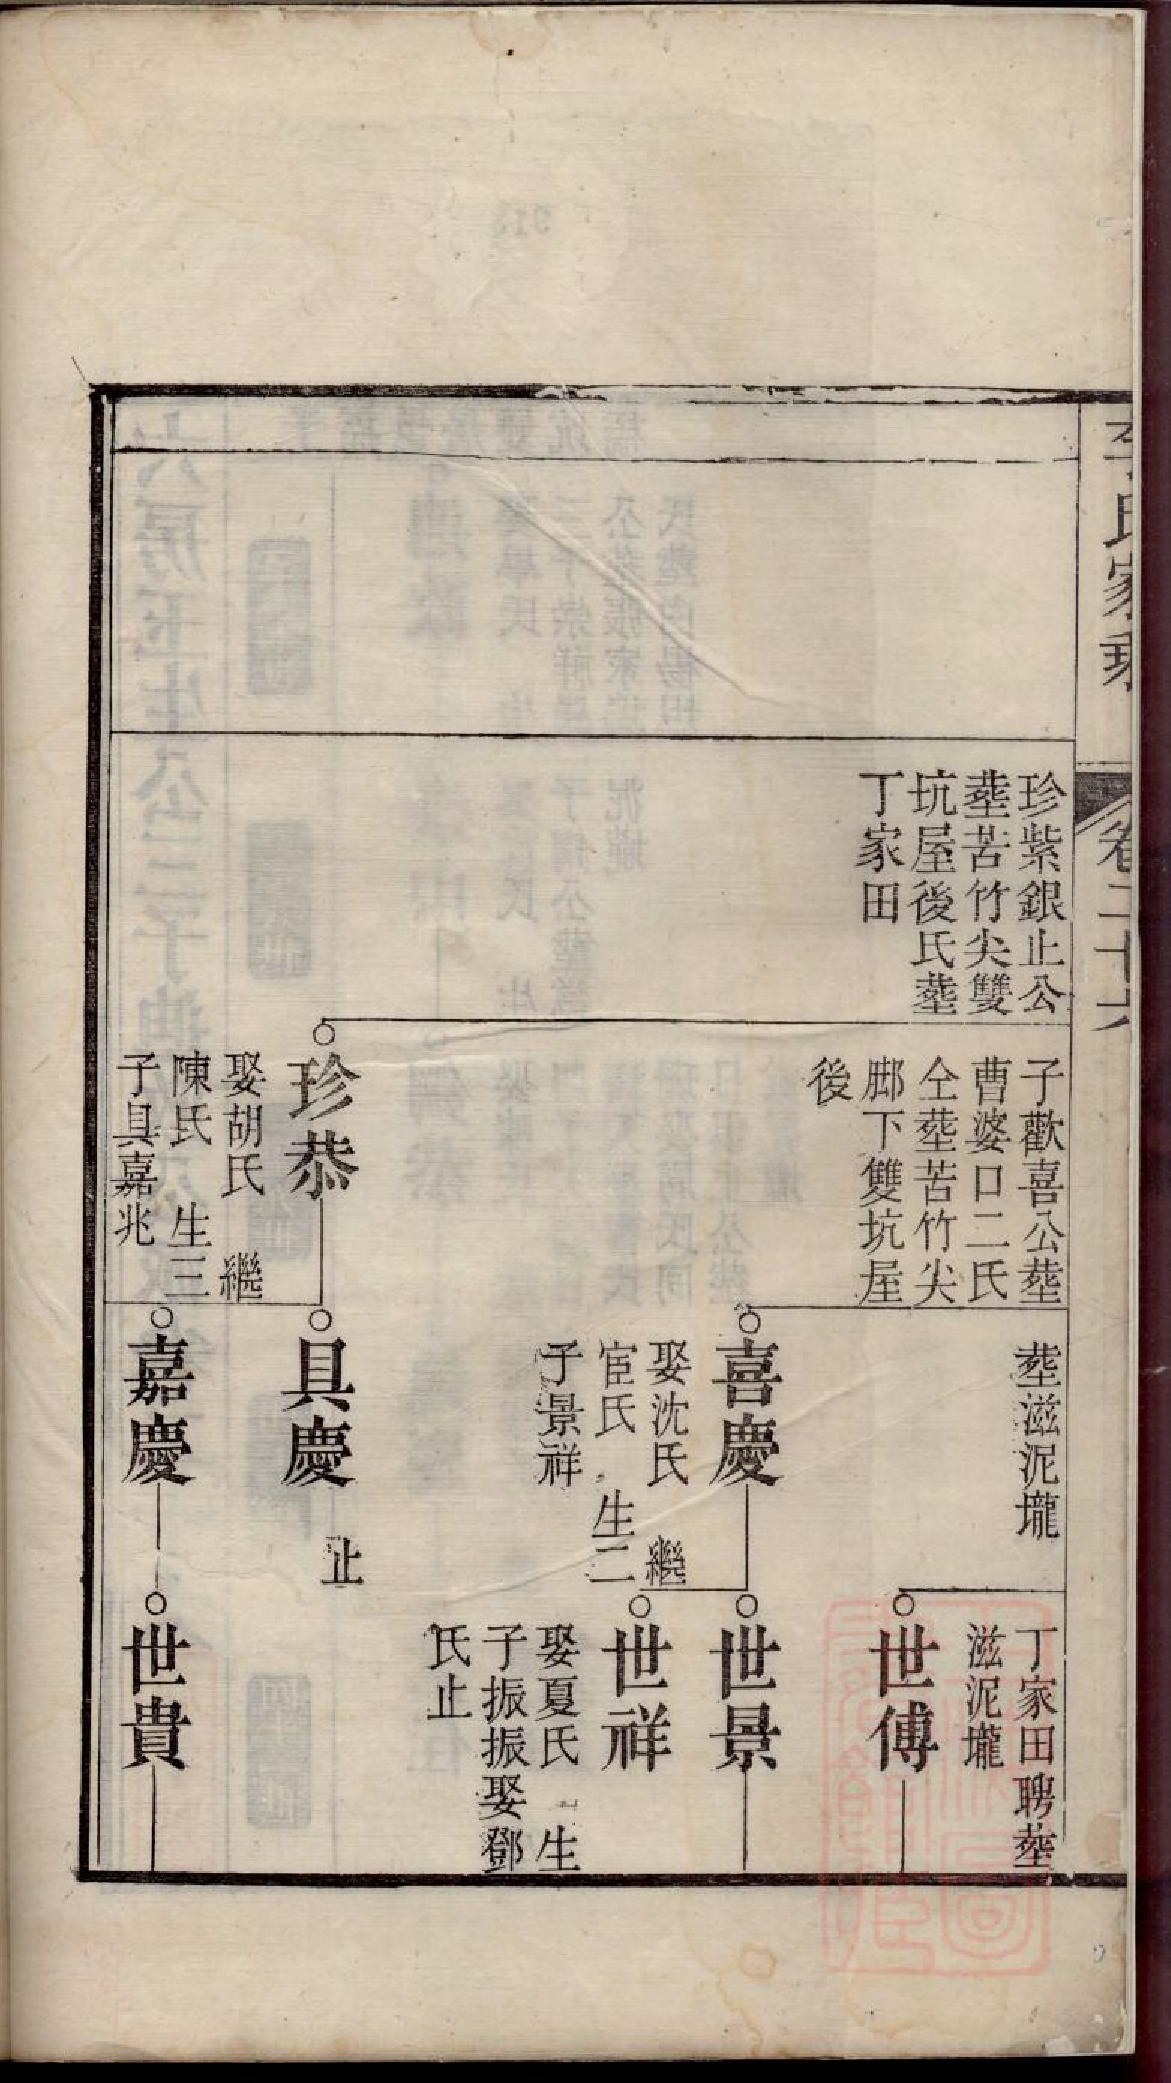 李氏家乘
卷二十六
珍紫銀止公
塟苦竹尖雙
坑屋後氏塟
丁家田
子歡喜公塟
曹婆口二氏
仝塟苦竹尖
脚下雙坑屋
後
珍恭
娶胡氏 繼
陳氏 生三
子具嘉兆
塟滋泥壠
喜慶
娶沈氏 繼
宦氏 生二
子景祥
具慶
止
嘉慶
丁家田聘塟
滋泥壠
世傅
世景
世祥
娶夏氏 生
子振振娶鄧
氏止
世貴